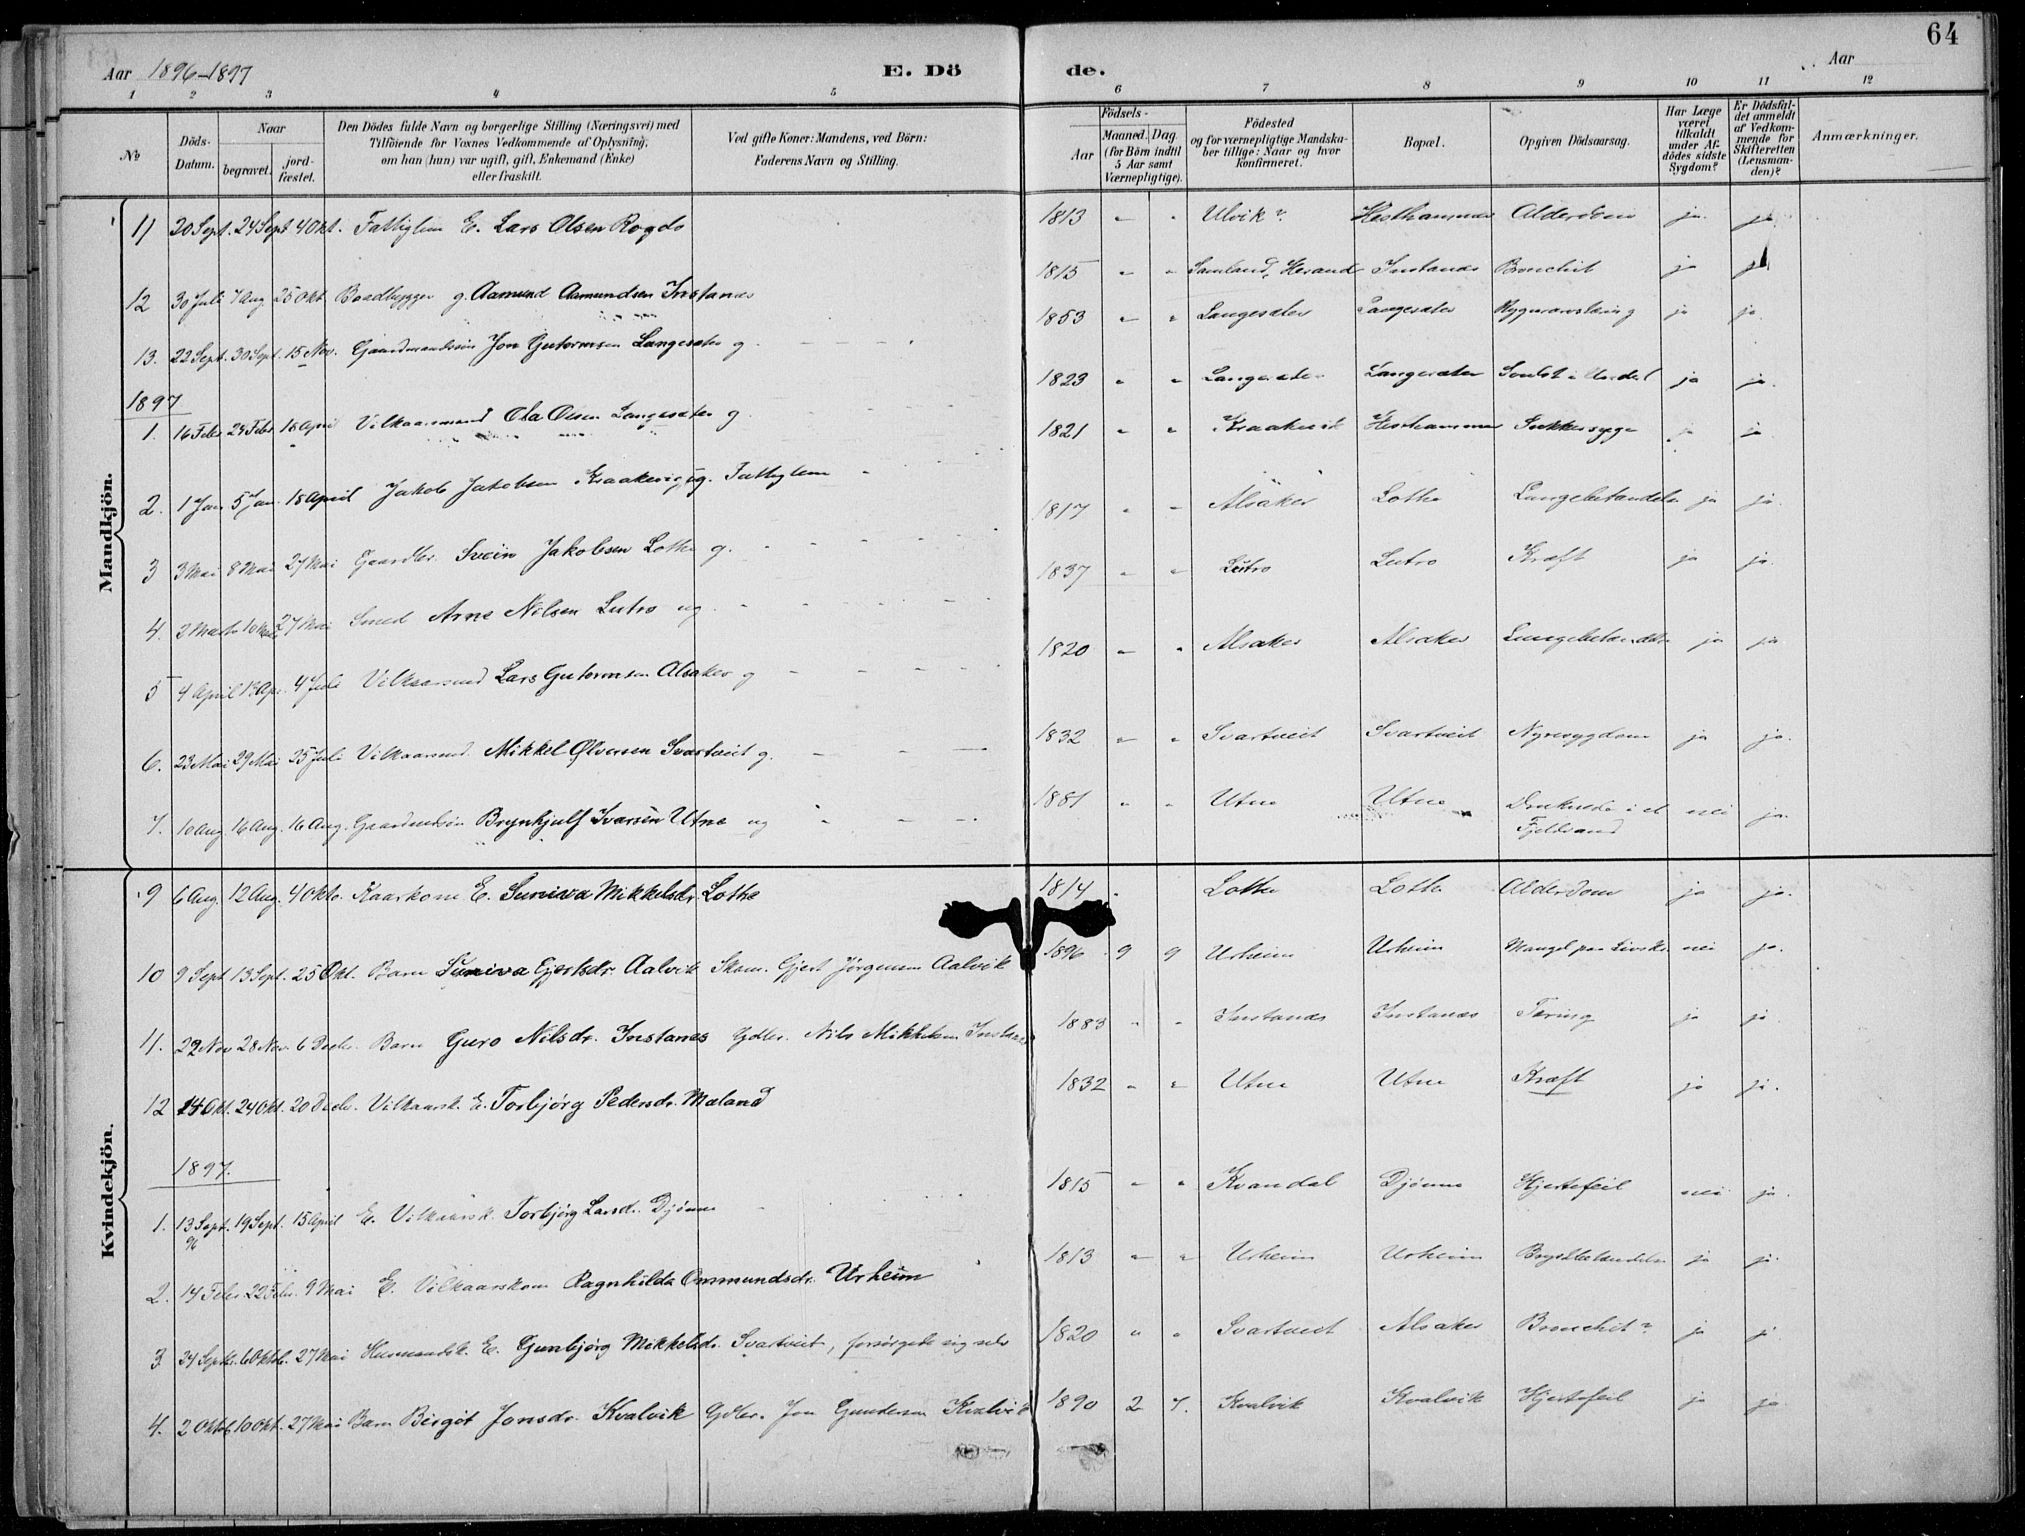 64
Aar 1896-1897 E. Döde. Aar
1 2 3 4 5 6 7 8 9 10 11 12
№
Döds-Datum.
Naar
begravet.
jord-fæstet.
Den Dödes fulde Navn og borgerlige Stilling (Næringsvei) med
Tilföiende for Voxnes Vedkommende af Oplysning,
om han (hun) var ugift, gift, Enkemand (Enke)
eller fraskilt.
Ved gifte Koner: Mandens, ved Börn:
Faderens Navn og Stilling.
Födsels-
Aar
Maaned. Dag.
(for Börn indtil
5 Aar samt
Værnepligtige).
Födested
og for værnepligtige Mandska-
ber tillige: Naar og hvor
konfirmeret.
Bopæl.
Opgiven Dödsaarsag.
Har Læge
været
tilkaldt
under Af-
dödes sidste
Sygdom?
Er Dödsfal-
det anmeldt
af Vedkom-
mende for
Skifteretten
(Lensman-
den)?
Anmærkninger.
Mandkjön.
11 20 Sept. 24 Sept 4 Okt. Fattiglem E. Lars Olsen Rogde 1813 " " Ulvik? Hesthammer Alderdom ja ja
12 30 Juli 7 Aug. 25 Okt Baadbygger g. Aamund Aamundsen Instanes 1815 " " Samland, Herand Instanes Bronchit ja ja
13. 22 Sept. 30 Sept. 15 Nov. Gaardmandssøn Jon Gutormsen Langesæter g. 1853 " " Langesæter Langesæter ja ja
1897
1. 16 Febr 24 Febr 18 April Vilkaarsmand Ola Olsen Langesæter g. 1823 " " Langesæter Langesæter ja ja.
2. 1 Jan 5 Jan. 18 April Jakob Jakobsen Kraakevig, ug. Fattiglem 1821 " " Kraakevik Hesthammer Sukkersyge ja ja
3 3 Mai 8 Mai 27 Mai Gaardbr. Svein Jakobsen Lothe g. 1817 " " Alsaker Lothe Lungebetændelse ja ja.
4. 2 Marts 10 27 Mai Smed Arne Nilsen Lutro ug. 1837 " " Lutro Lutro Kræft ja ja.
5 4 April 13 Apr. 4 Juli Vilkaarsmd Lars Gutormsen Alsaker g 1820 " " Alsaker Alsaker Lungebetændelse ja ja
6. 23 Mai 29 Mai 25 Juli Vilkaarsmd. Mikkel Ølversen Svartveit g. 1832 " " Svartveit Svartveit Nyresygdom ja ja.
7. 10 Aug 16 Aug. 16 Aug. Gaardmdsøn Brynhjulf Ivarsen Utne ug 1881 " " Utne Utne Druknede i et nei ja.
Fjeldvand
Kvindekjön.
9 6 Aug. 12 Aug. 4 Okto. Kaarkone E. Suniva Mikkelsdr. Lothe 1814 Lothe Lothe Alderdom ja ja.
10 9 Sept 13 Sept. 25 Okt. Barn Suniva Gjertsdr. Aalvik Skom. Gjert Jørgensen Aalvik 1896 9 9 Urheim Urheim Mangel paa Livskr. nei ja.
11. 22 Nov 28 Nov. 6 Decbr. Barn Guro Nilsdr. Instanes Gdbr. Nils Mikkelsen Instanes 1883 " " Instanes Instanes Tæring ja ja
12 14 Okt. 24 Okt. 20 Decbr. Vilkaarsk. E. Torbjørg Pedersdr. Mæland 1832 " " Utne Utne Kræft ja ja.
1897.
1. 13 Sept. 19 Sept. 15 April E. Vilkaarsk. Torbjørg Larsdr. Djønne 1815 " " Kvandal Djønne Hjertefeil nei ja.
96
2. 14 Febr. 22 Febr. 9 Mai E. Vilkaarskone Ragnhilda Ommundsdr. Urheim 1813 " " Urheim Urheim Brystbetændelse ja ja.
3. 24 Septbr. 6 Oktb. 27 Mai Husmandsk. E. Gunbjørg Mikkelsdr. Svartveit, forsørgede sig selv 1820 " " Svartveit Alsaker Bronchit? ja ja
4. 2 Oktob 10 Okt. 27 Mai Barn Birgit Jonsdr. Kvalvik Gdbr. Jon Gundersen Kvalvik 1890 2 7. Kvalvik Kvalvik Hjertefeil ja ja